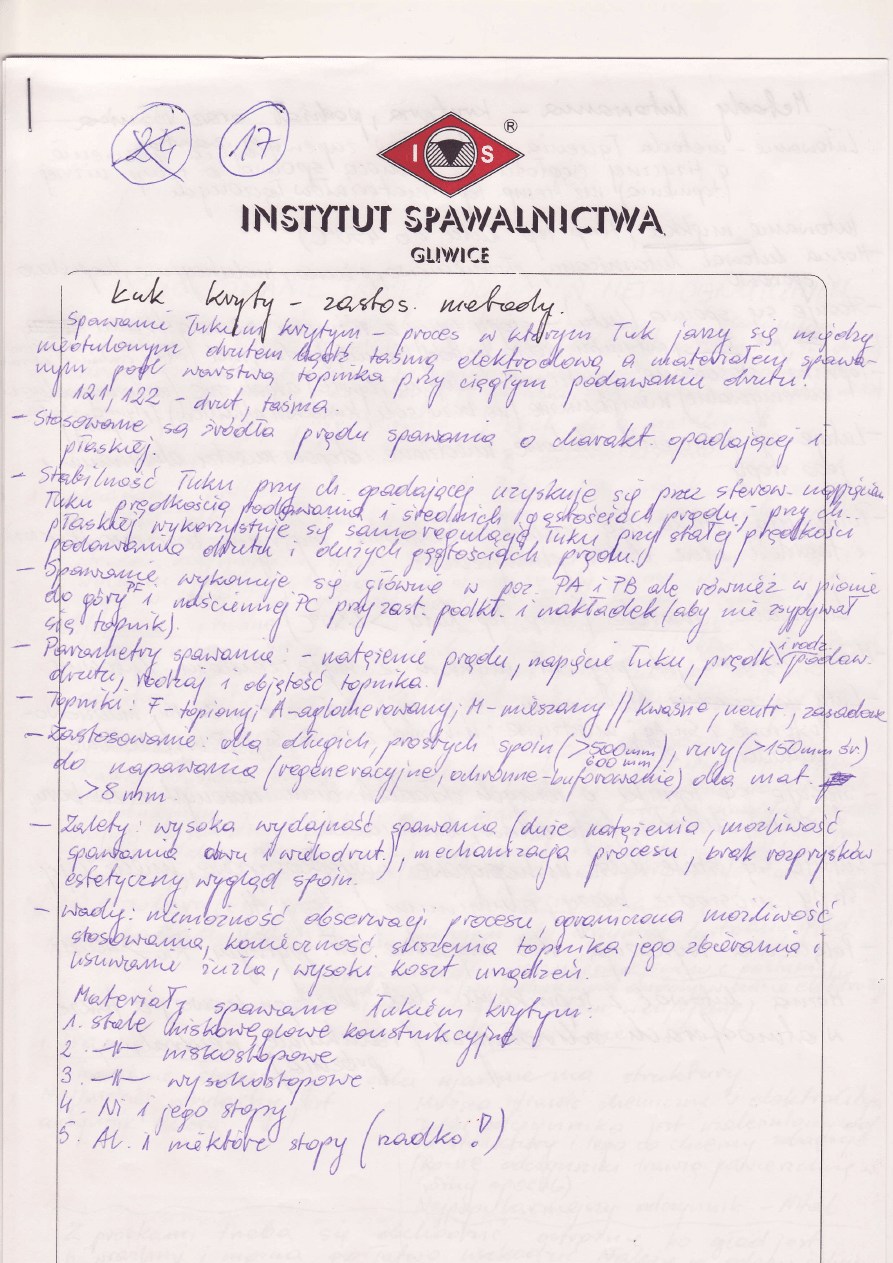 24 17
®
I S
INSTYTUT SPAWALNICTWA
GLIWICE
Łuk kryty – zastos. metody.
Spawanie łukiem krytym – proces w którym łuk jarzy się między
nieotulonym drutem bądź taśmą elektrodową a materiałem spawa-
nym pod warstwą topnika przy ciągłym podawaniu drutu.
121, 122 – drut, taśma.
– Stosowane są źródła prądu spawania o charakt. opadającej i
płaskiej.
– Stabilność łuku przy ch. opadającej uzyskuje się przez sterow. napięciem
łuku prędkością podawania i średnich gęstościach prądu, przy ch.
płaskiej wykorzystuje się samoregulację łuku przy stałej prędkości
podawania drutu i dużych gęstościach prądu.
– Spawanie wykonuje się głównie w poz. PA i PB ale również w pionie
do góry PF i naściennej PC przy zast. podkł. i nakładek (aby nie zsypywał
się topnik).
– Parametry spawania: – natężenie prądu, napięcie łuku, prędk. i rodz. podaw.
drutu, rodzaj i objętość topnika.
– Topniki: F – topiony; A – aglomerowany; M – mieszany // kwaśne, neutr., zasadowe
– Zastosowanie: dla długich, prostych spoin (>500mm), rury (>150mm śr.)
600 mm
do napawania (regeneracyjne, ochronne – buforowanie) dla mat.
>8 mm.
– Zalety: wysoka wydajność spawania (duże natężenia, możliwość
spawania dwu i wielodrut.), mechanizacja procesu, brak rozprysków
estetyczny wygląd spoin.
– Wady: niemożność obserwacji procesu, ograniczona możliwość
stosowania, konieczność suszenia topnika jego zbierania i
usuwanie żużla, wysoki koszt urządzeń.
Materiały spawane łukiem krytym:
1. stale niskowęglowe konstrukcyjne
2. –||– niskostopowe
3. –||– wysokostopowe
4. Ni i jego stopy
5. Al. i niektóre stopy (rzadko!)